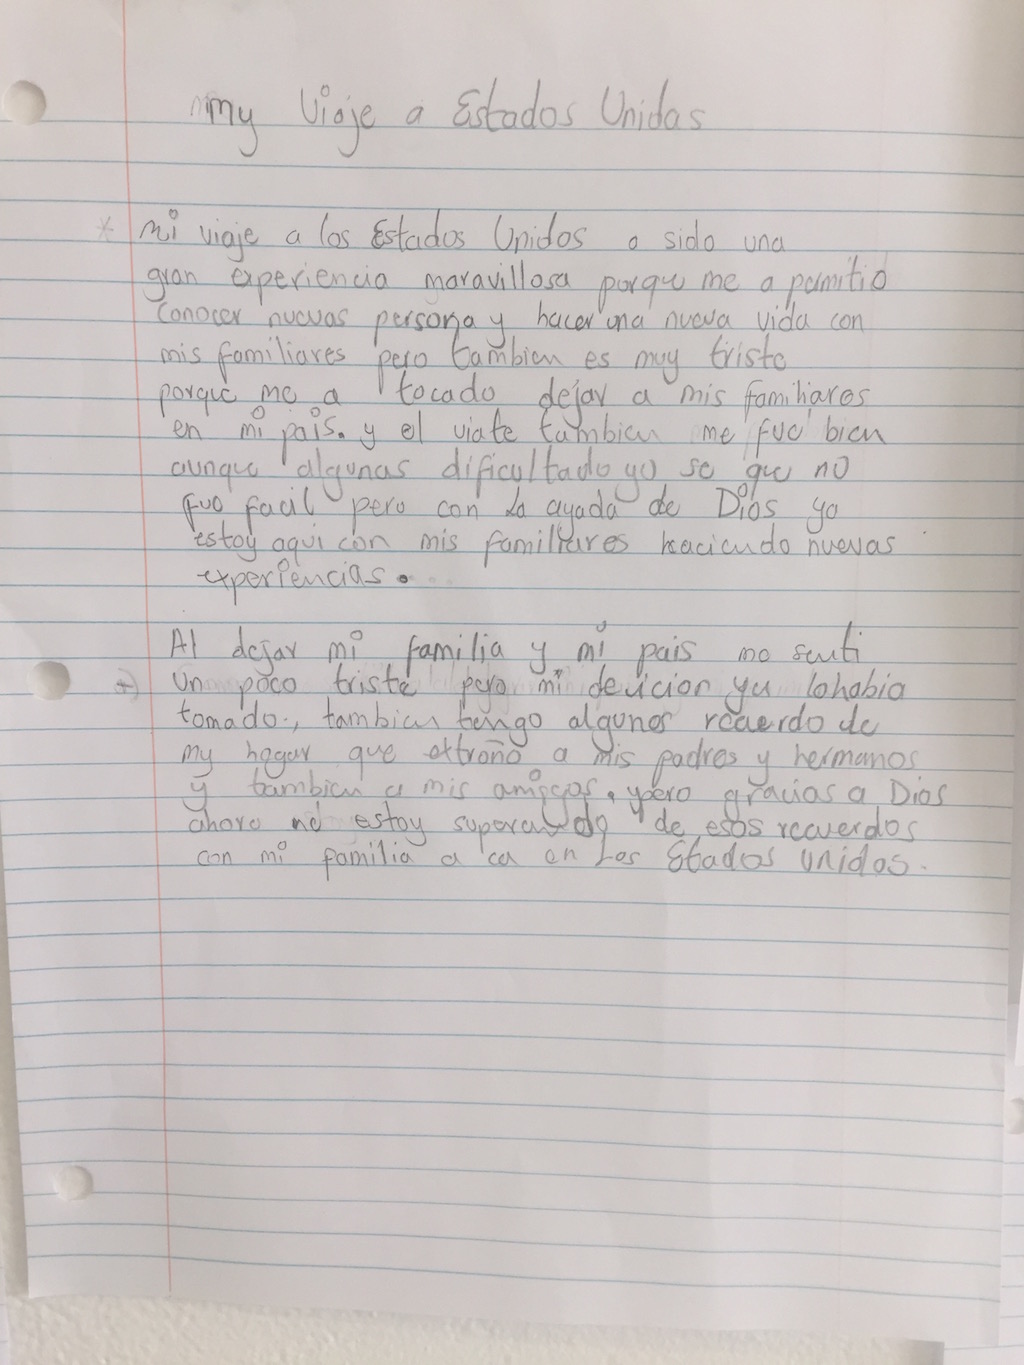 my Viaje a Estados Unidas
Mi viaje a los Estados Unidos a sido una
gran experiencia maravillosa porque me a pemitio
Conocer nuevas persona y hacer una nueva vida con
mis familiares pero tambien es muy triste
porque me a tocado dejar a mis familiares
en mi pais. y el viate tambien me fue bien
aunque algunas dificultado yo se que no
fue facil pero con la ayuda de Dios ya
estoy aqui con mis familiares haciendo nuevas
experiencias.
Al dejar mi familia y mi pais me senti
Un poco triste pero mi decicion ya lohabia
tomado., tambien tengo algunos recuerdo de
my hogar que extraño a mis padres y hermanos
y tambien a mis amigos. pero gracias a Dios
ahora estoy superando de esos recuerdos
con mi familia a ca en Los Estados Unidos.